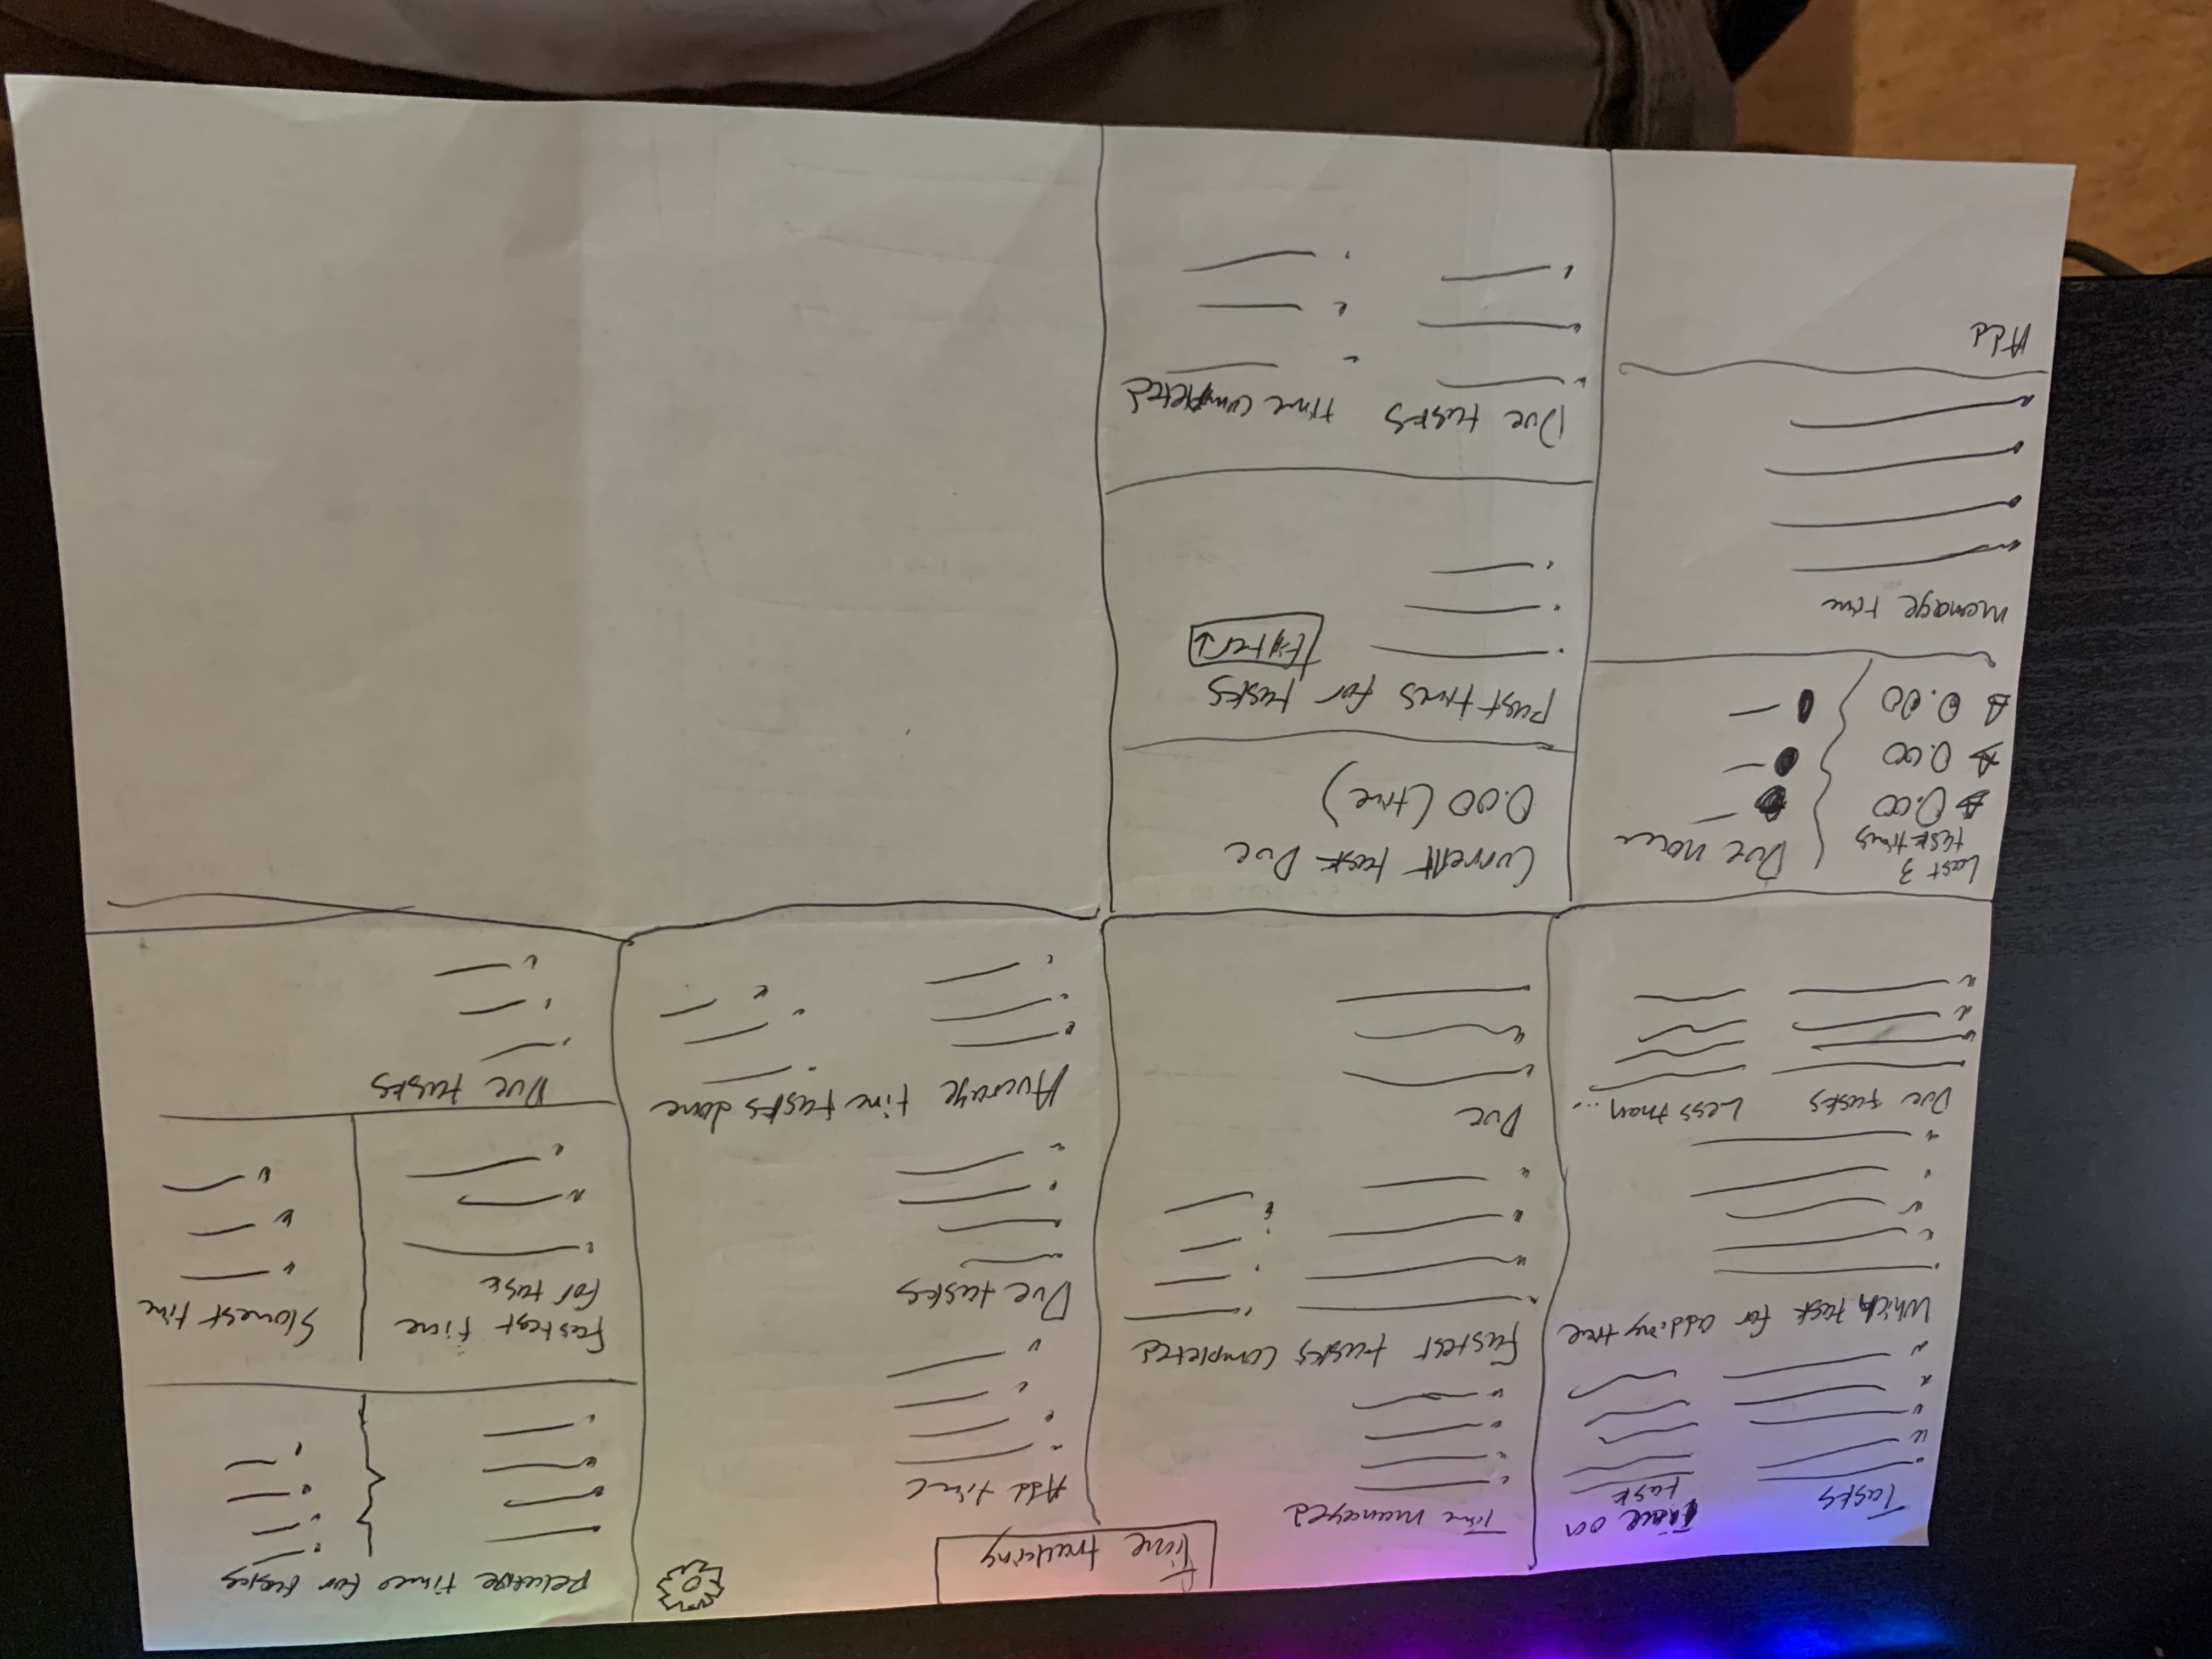 Time tracking
Tasks
Time on
task
Which task for adding time
Due tasks
Less than...
Time managed
Fastest tasks completed
Due
Add time
Due tasks
Average time tasks done
Relative time for tasks
Fastest time
for task
Slowest time
Due tasks
Last 3
task times
Due now
0.00
0.00
0.00
manage time
Add
Current task Due
0.00 (time)
Past times for tasks
Due tasks
time completed